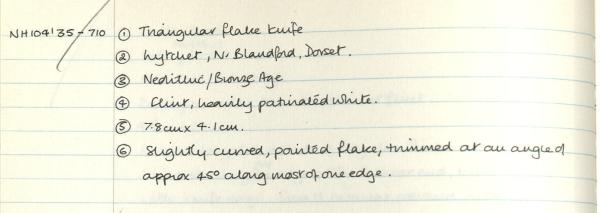 NH104135-710 ① Triangular flake knife
② Lytchet, Nr Blandford, Dorset.
③ Neolithic/Bronze Age
④ Flint, heavily patinated white.
⑤ 7.8cm x 4.1cm.
⑥ Slightly curved, pointed flake, trimmed at an angle of
approx 45° along most of one edge.